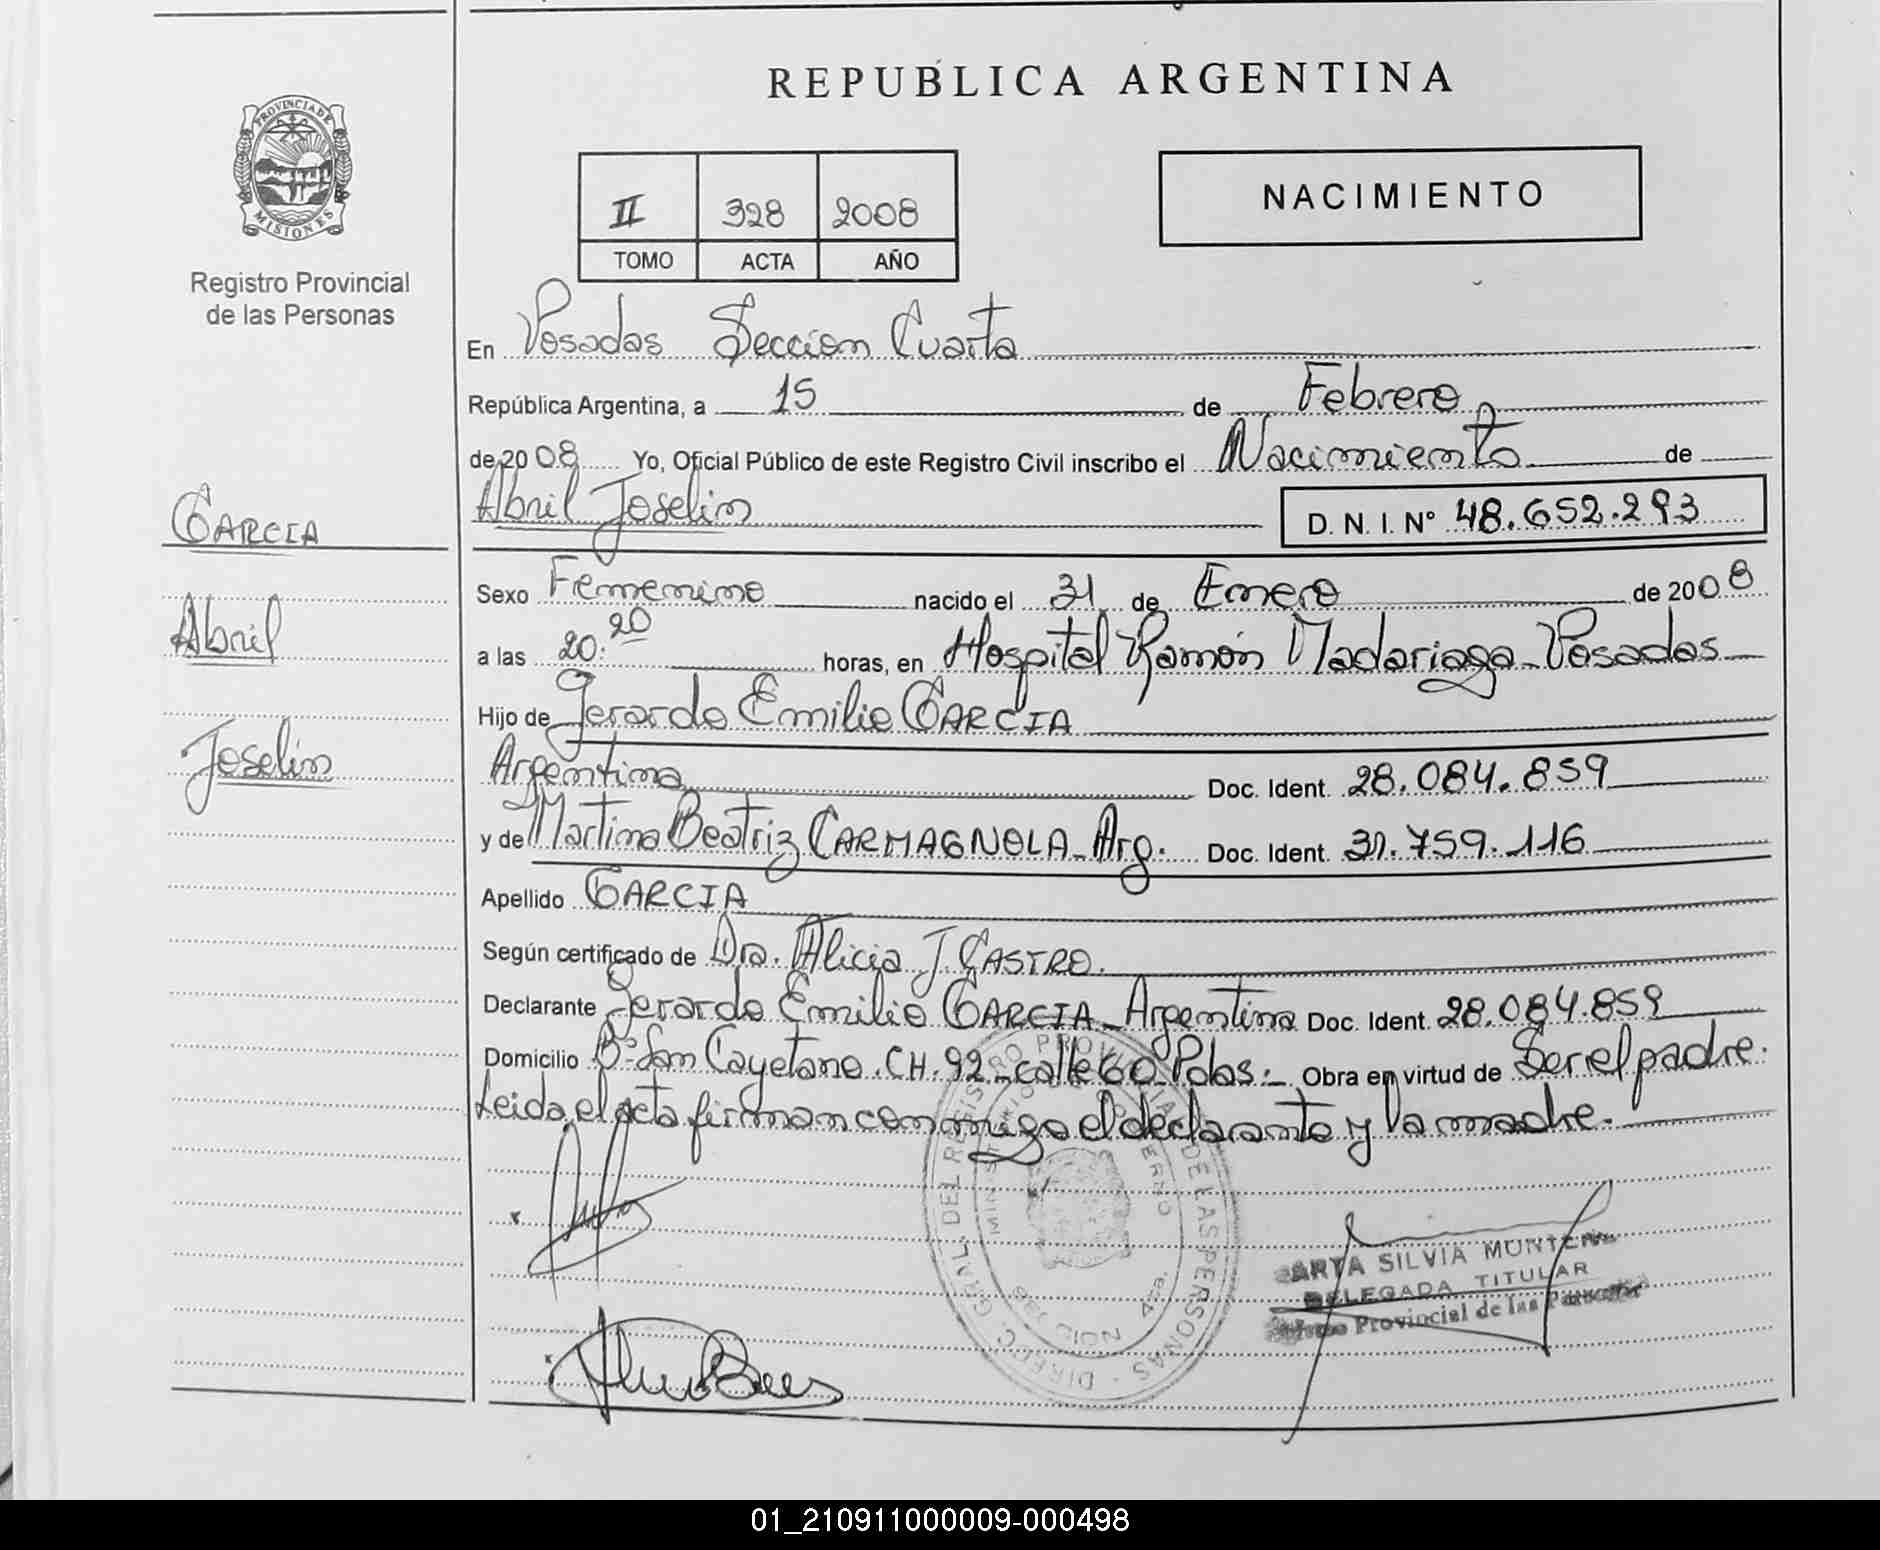 REPUBLICA ARGENTINA
PROVINCIA DE
MISIONES
Registro Provincial
de las Personas
II 328 2008
TOMO ACTA AÑO
NACIMIENTO
En Posadas Sección Cuarta
República Argentina, a 15 de Febrero
de 2008 Yo, Oficial Público de este Registro Civil inscribo el Nacimiento de
Abril Joselin D. N. I. N° 48.652.293
GARCIA
Abril
Joselin
Sexo Femenino nacido el 31 de Enero de 2008
a las 20:20 horas, en Hospital Ramón Madariaga - Posadas
Hijo de Gerardo Emilio GARCIA
Argentina Doc. Ident. 28.084.859
y de Martina Beatriz CARMAGNOLA - Arg. Doc. Ident. 31.759.116
Apellido GARCIA
Según certificado de Dra. Alicia J. CASTRO.
Declarante Gerardo Emilio GARCIA - Argentina Doc. Ident. 28.084.859
Domicilio B° San Cayetano. CH. 92 - calle 60 - Pdas. - Obra en virtud de Ser el padre.
Leida el acta firman conmigo el declarante y la madre.
DIREC. GRAL. DEL REGISTRO PROVINCIAL DE LAS PERSONAS
SILVIA
DELEGADA TITULAR
Provincial de las Personas
01_210911000009-000498